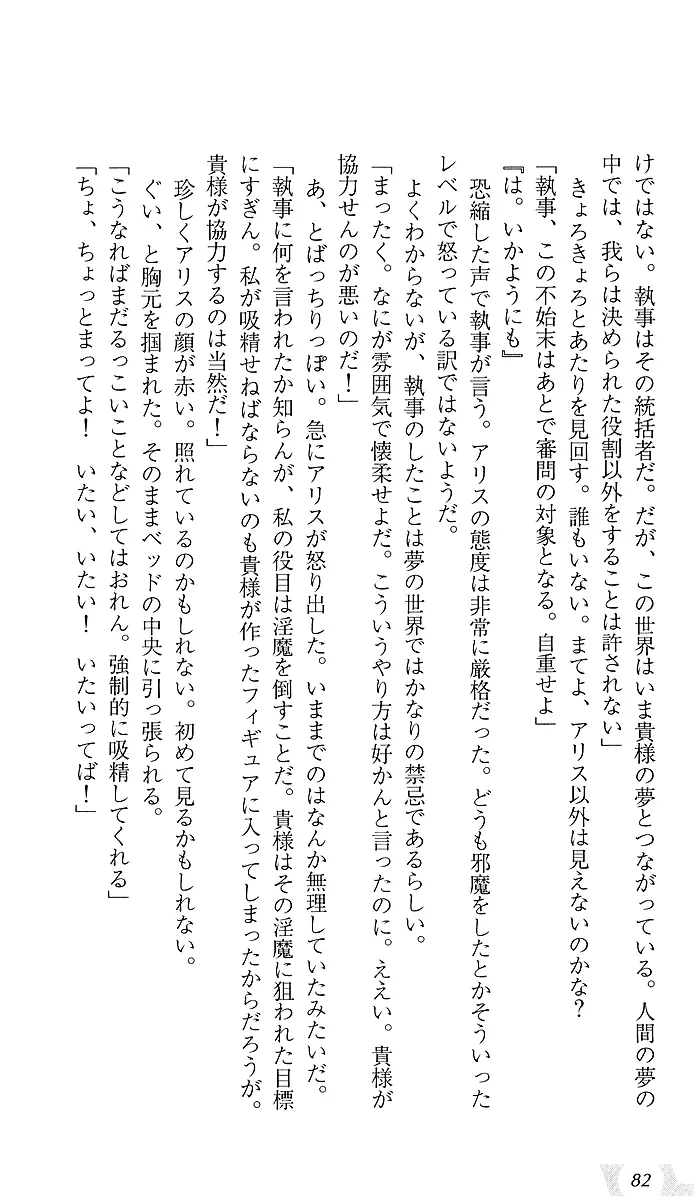 けではない。執事はその統括者だ。だが、この世界はいま貴様の夢とつながっている。人間の夢の
中では、我らは決められた役割以外をすることは許されない」
　きょろきょろとあたりを見回す。誰もいない。まてよ、アリス以外は見えないのかな？
「執事、この不始末はあとで審問の対象となる。自重せよ」
『は。いかようにも』
　恐縮した声で執事が言う。アリスの態度は非常に厳格だった。どうも邪魔をしたとかそういった
レベルで怒っている訳ではないようだ。
　よくわからないが、執事のしたことは夢の世界ではかなりの禁忌であるらしい。
「まったく。なにが雰囲気で懐柔せよだ。こういうやり方は好かんと言ったのに。ええい。貴様が
協力せんのが悪いのだ！」
　あ、とばっちりっぽい。急にアリスが怒り出した。いままでのはなんか無理していたみたいだ。
「執事に何を言われたか知らんが、私の役目は淫魔を倒すことだ。貴様はその淫魔に狙われた目標
にすぎん。私が吸精せねばならないのも貴様が作ったフィギュアに入ってしまったからだろうが。
貴様が協力するのは当然だ！」
　珍しくアリスの顔が赤い。照れているのかもしれない。初めて見るかもしれない。
　ぐい、と胸元を掴まれた。そのままベッドの中央に引っ張られる。
「こうなればまだるっこいことなどしてはおれん。強制的に吸精してくれる」
「ちょ、ちょっとまってよ！　いたい、いたい！　いたいってば！」
82